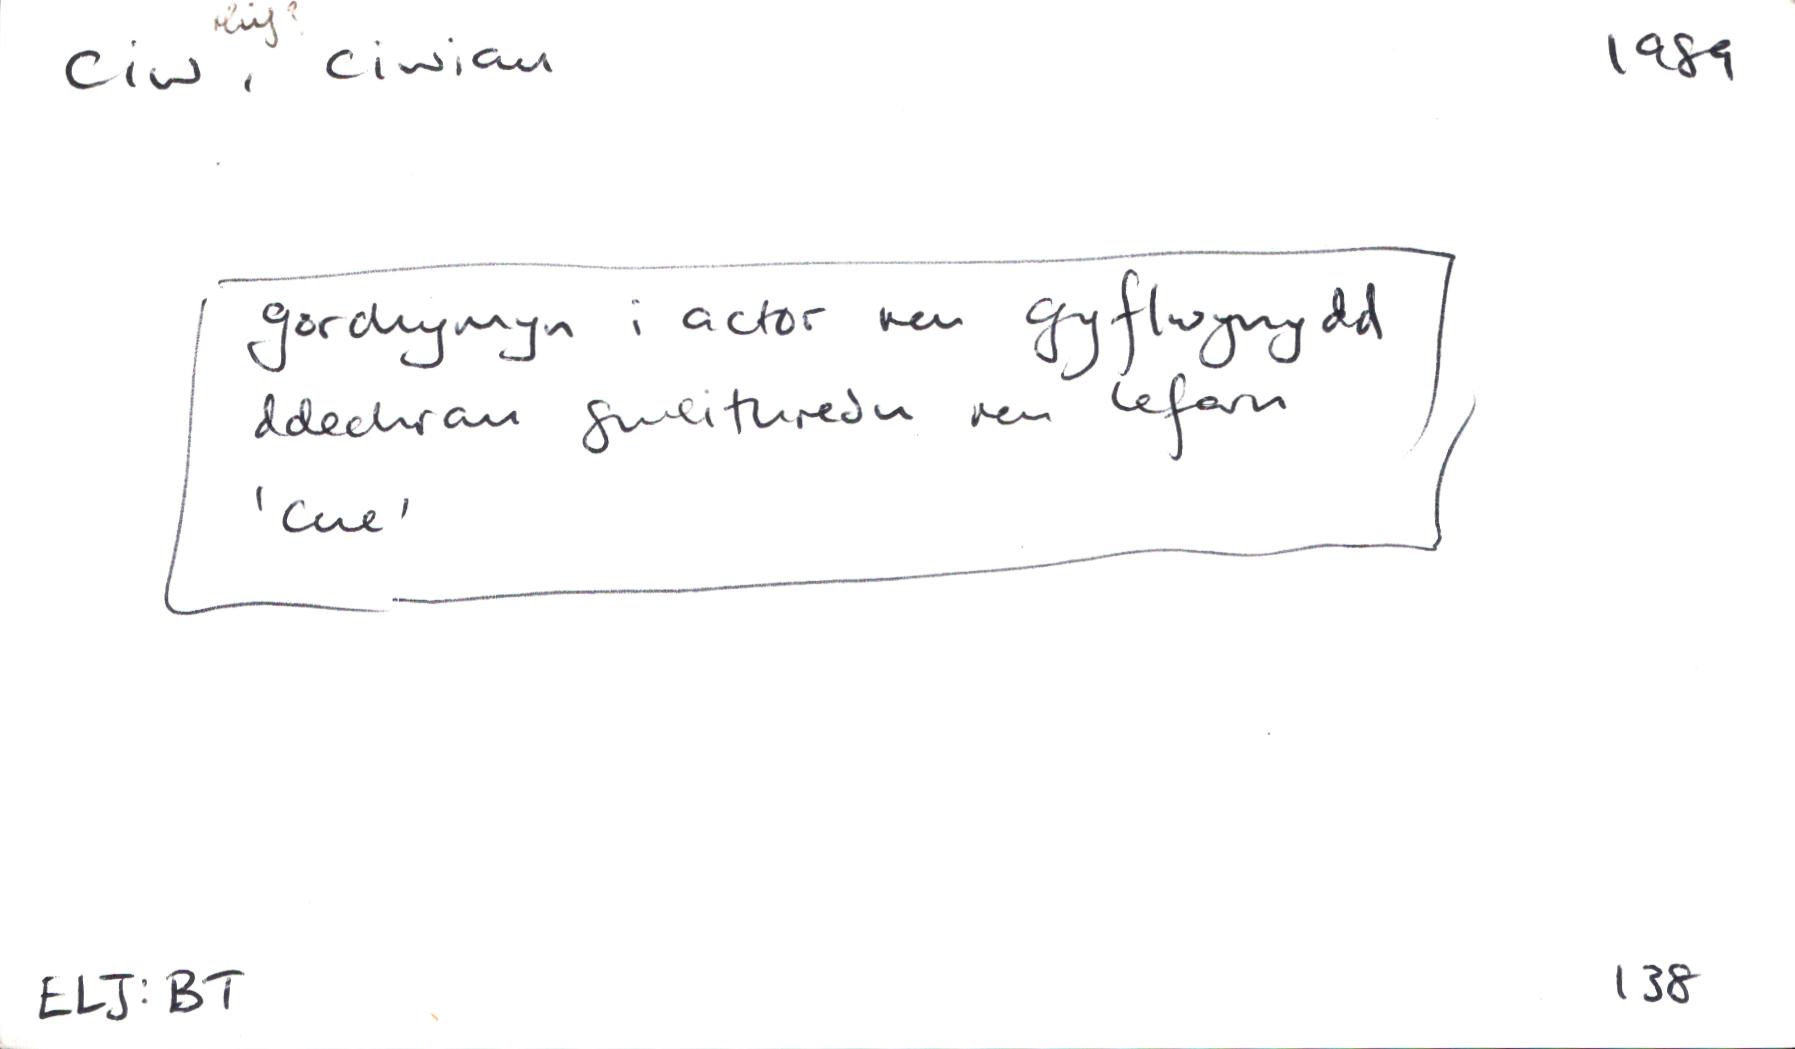 ciw, ciwiau 1989
gorchymyn i actor neu gyflwynydd
ddechrau gweithredu neu lefaru
'cue'
ELJ: BT 138